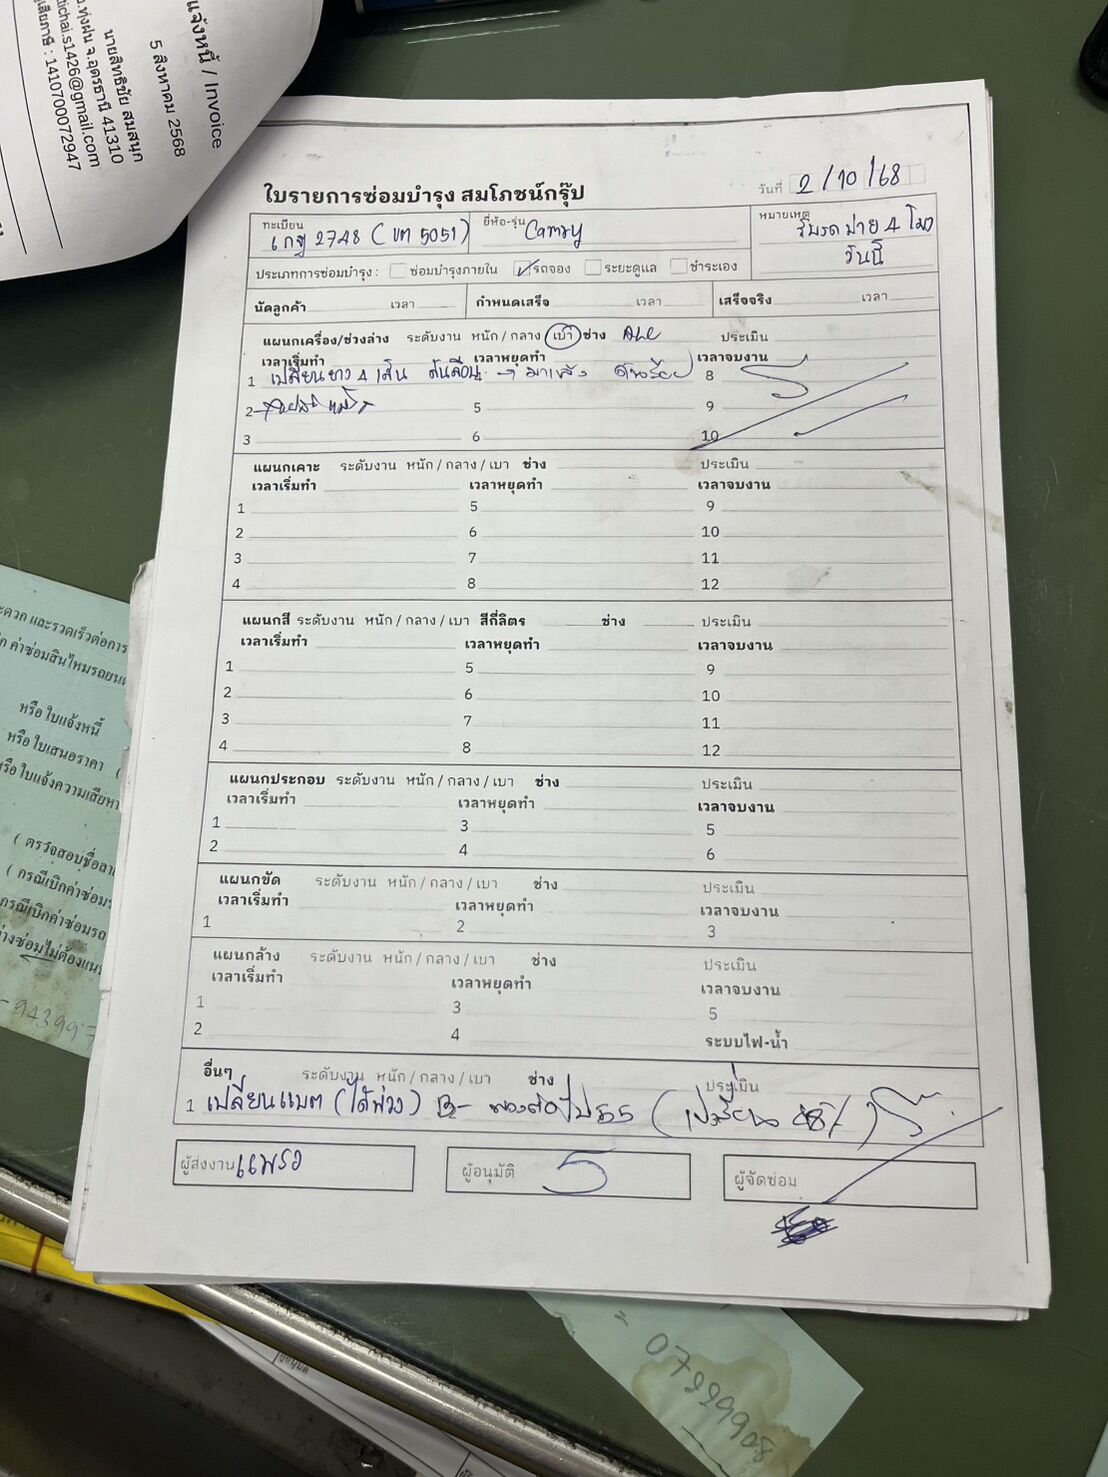 แจ้งหนี้ / Invoice
5 สิงหาคม 2568
นายสิทธิชัย สมสนุก
อ.ทุ่งฝน จ.อุดรธานี 41310
ttichai.s1426@gmail.com
เสียภาษี : 1410700072947
ใบรายการซ่อมบำรุง สมโภชน์กรุ๊ป
วันที่ 2/10/68
ทะเบียน 2748 (5051) ยี่ห้อ-รุ่น Camry
หมายเหตุ รับรถ บ่าย 4 โมง
วันนี้
ประเภทการซ่อมบำรุง : ซ่อมบำรุงภายใน รถจอง ระยะดูแล ชำระเอง
นัดลูกค้า เวลา กำหนดเสร็จ เวลา เสร็จจริง เวลา
แผนกเครื่อง/ช่วงล่าง ระดับงาน หนัก / กลาง / เบา ช่าง ประเมิน
เวลาเริ่มทำ เวลาหยุดทำ เวลาจบงาน
1 เปลี่ยนยาง 4 เส้น 8
2 5 9
3 6 10
แผนกเคาะ ระดับงาน หนัก / กลาง / เบา ช่าง ประเมิน
เวลาเริ่มทำ เวลาหยุดทำ เวลาจบงาน
1 5 9
2 6 10
3 7 11
4 8 12
แผนกสี ระดับงาน หนัก / กลาง / เบา สีกี่ลิตร ช่าง ประเมิน
เวลาเริ่มทำ เวลาหยุดทำ เวลาจบงาน
1 5 9
2 6 10
3 7 11
4 8 12
แผนกประกอบ ระดับงาน หนัก / กลาง / เบา ช่าง ประเมิน
เวลาเริ่มทำ เวลาหยุดทำ เวลาจบงาน
1 3 5
2 4 6
แผนกขัด ระดับงาน หนัก / กลาง / เบา ช่าง ประเมิน
เวลาเริ่มทำ เวลาหยุดทำ เวลาจบงาน
1 2 3
แผนกล้าง ระดับงาน หนัก / กลาง / เบา ช่าง ประเมิน
เวลาเริ่มทำ เวลาหยุดทำ เวลาจบงาน
1 3 5
2 4 ระบบไฟ-น้ำ
อื่นๆ ระดับงาน หนัก / กลาง / เบา ช่าง ประเมิน
1 เปลี่ยนแบต (ได้พ่วง)
ผู้ส่งงาน แพรว ผู้อนุมัติ ผู้จัดซ่อม
ะดวก และรวดเร็วต่อการ
ค่าซ่อมสินไหมรถยนต์
หรือ ใบแจ้งหนี้
หรือ ใบเสนอราคา (
หรือ ใบแจ้งความเสียหา
( ตรวจสอบชื่อ
( กรณีเบิกค่าซ่อม
กรณีเบิกค่าซ่อมรถ
างซ่อมไม่ต้องแน